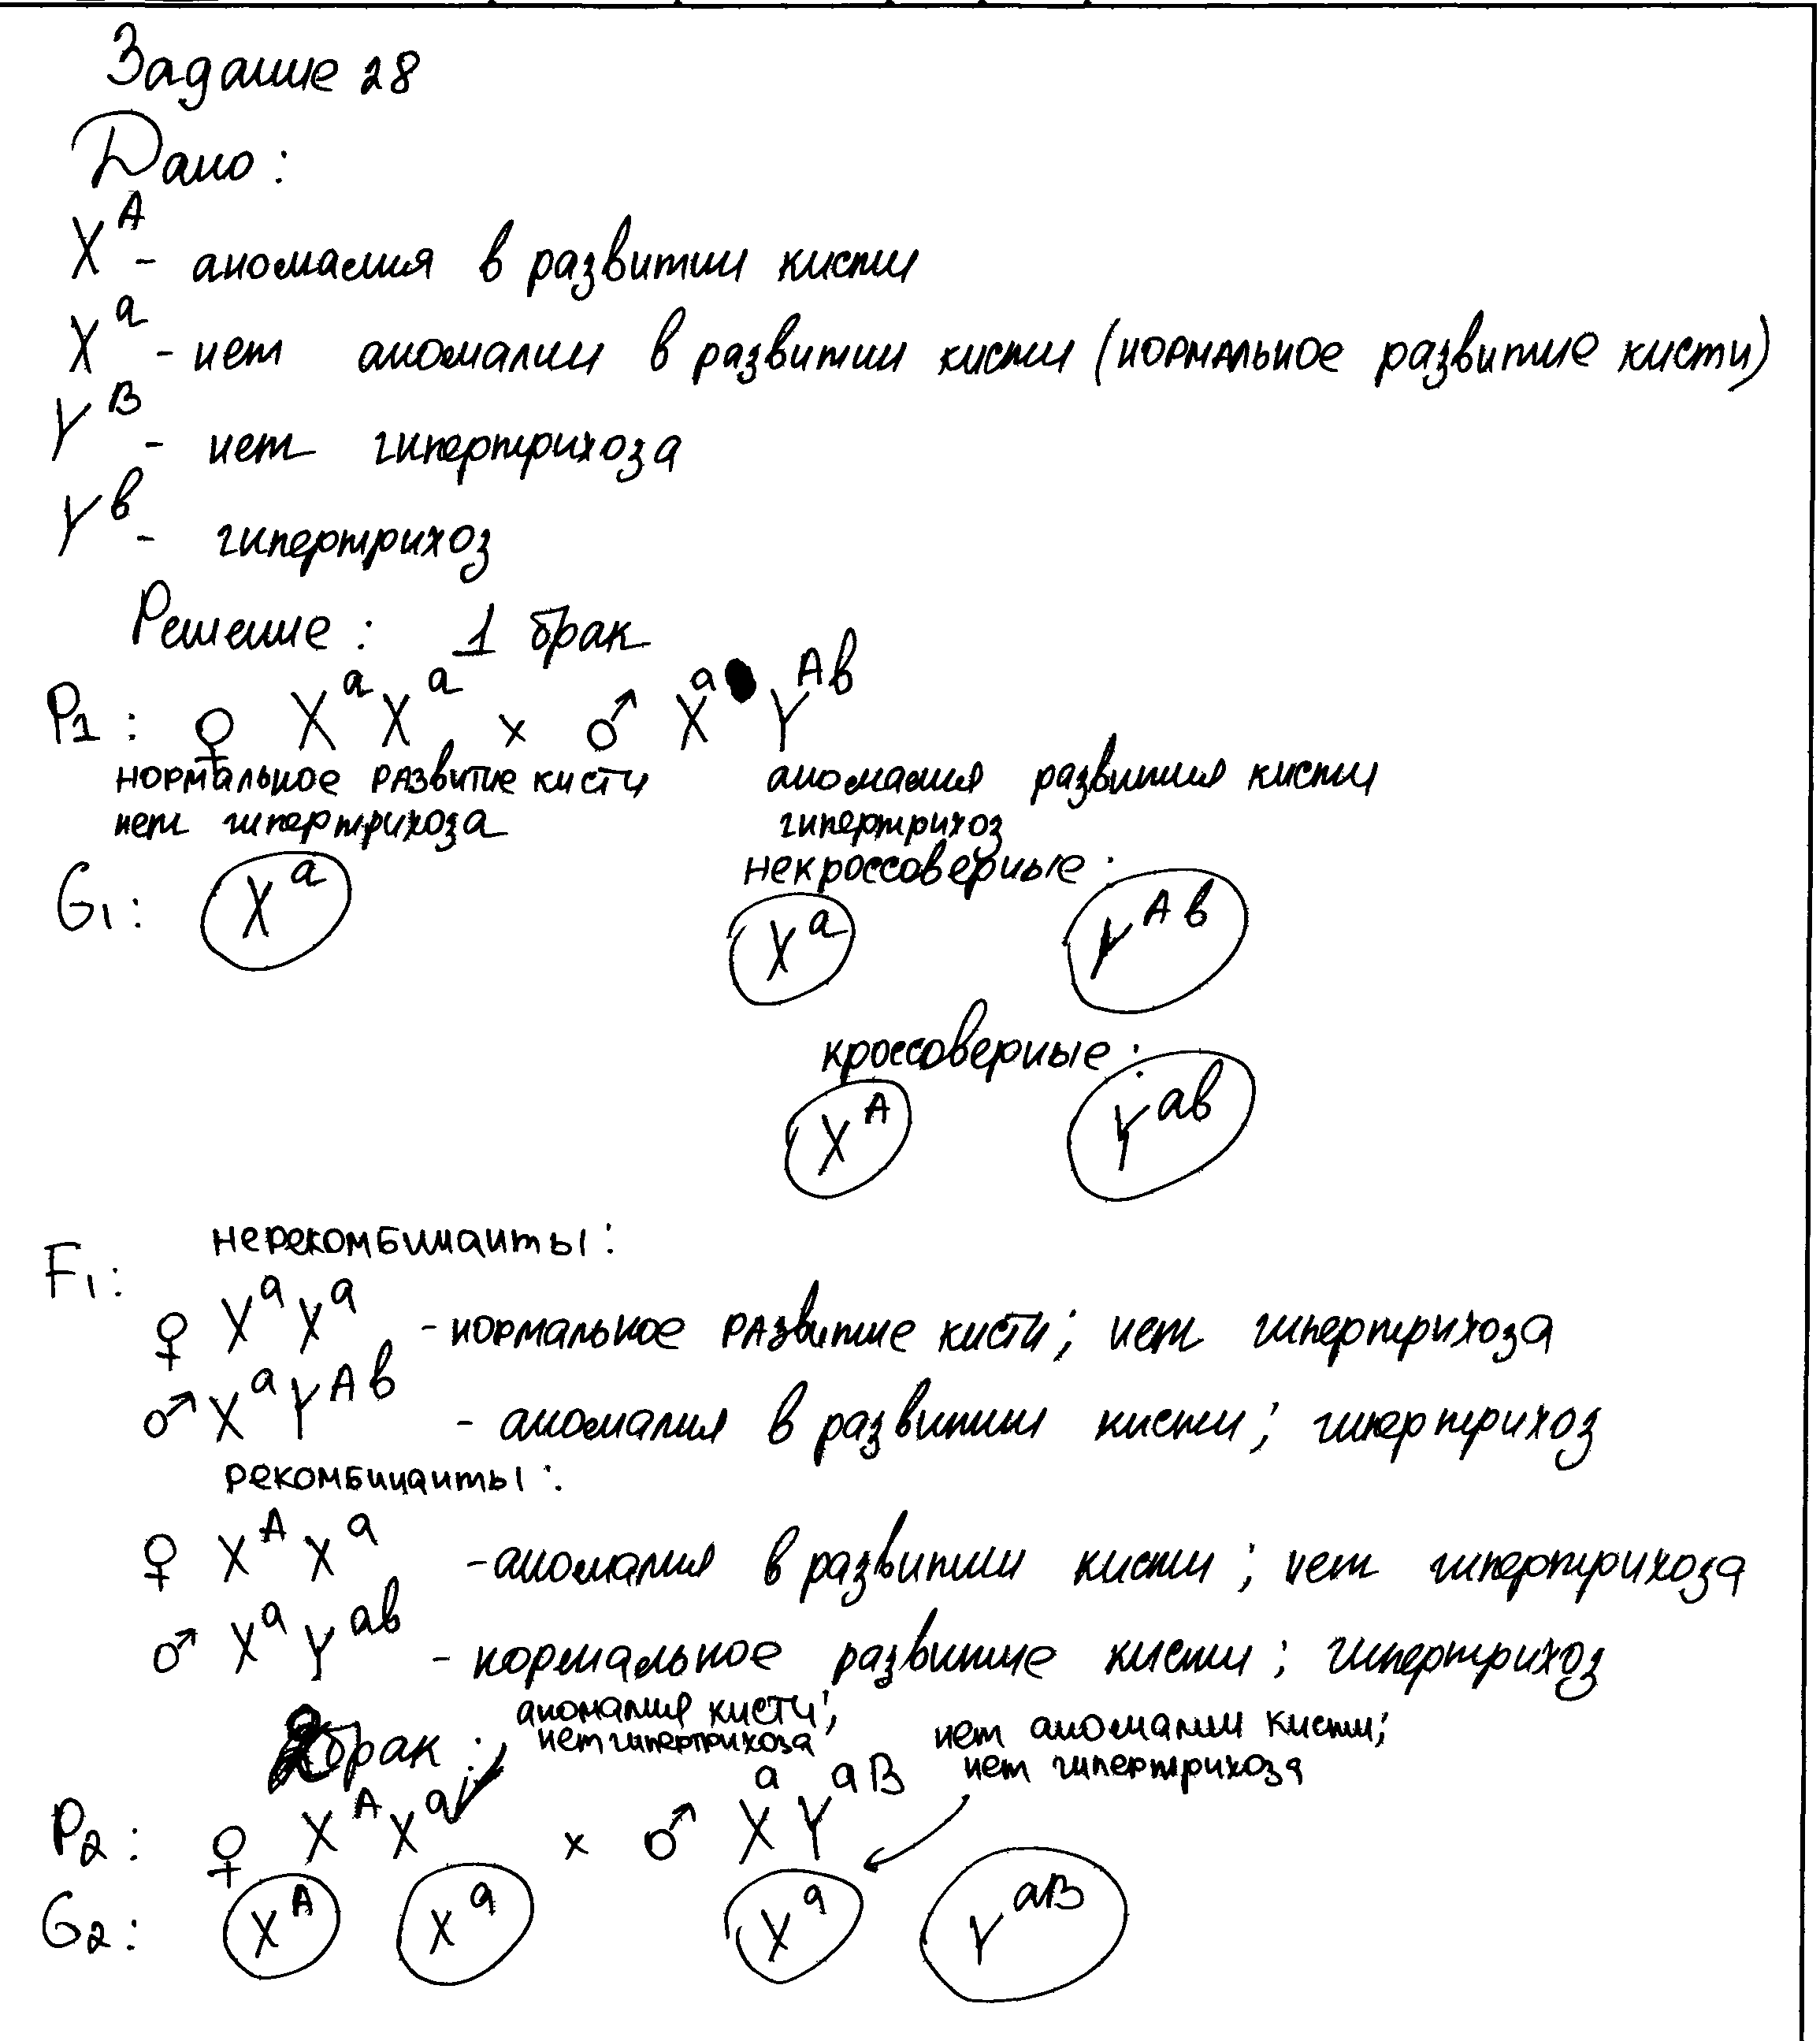 Задание 28
Дано:
X^A - аномалия в развитии кисти
X^a - нет аномалии в развитии кисти (нормальное развитие кисти)
Y^B - нет гипертрихоза
Y^b - гипертрихоз
Решение: 1 брак
P1: ♀ X^a X^a × ♂ X^a Y^Ab
нормальное развитие кисти аномалия развития кисти
нет гипертрихоза гипертрихоз
некроссоверные:
G1: X^a X^a Y^Ab
кроссоверные:
X^A Y^ab
нерекомбинанты:
F1:
♀ X^a X^a - нормальное развитие кисти; нет гипертрихоза
♂ X^a Y^Ab - аномалия в развитии кисти; гипертрихоз
рекомбинанты:
♀ X^A X^a - аномалия в развитии кисти; нет гипертрихоза
♂ X^a Y^ab - нормальное развитие кисти; гипертрихоз
2 брак:
аномалия кисти; нет аномалии кисти;
нет гипертрихоза нет гипертрихоза
P2: ♀ X^A X^a × ♂ X^a Y^aB
G2: X^A X^a X^a Y^aB